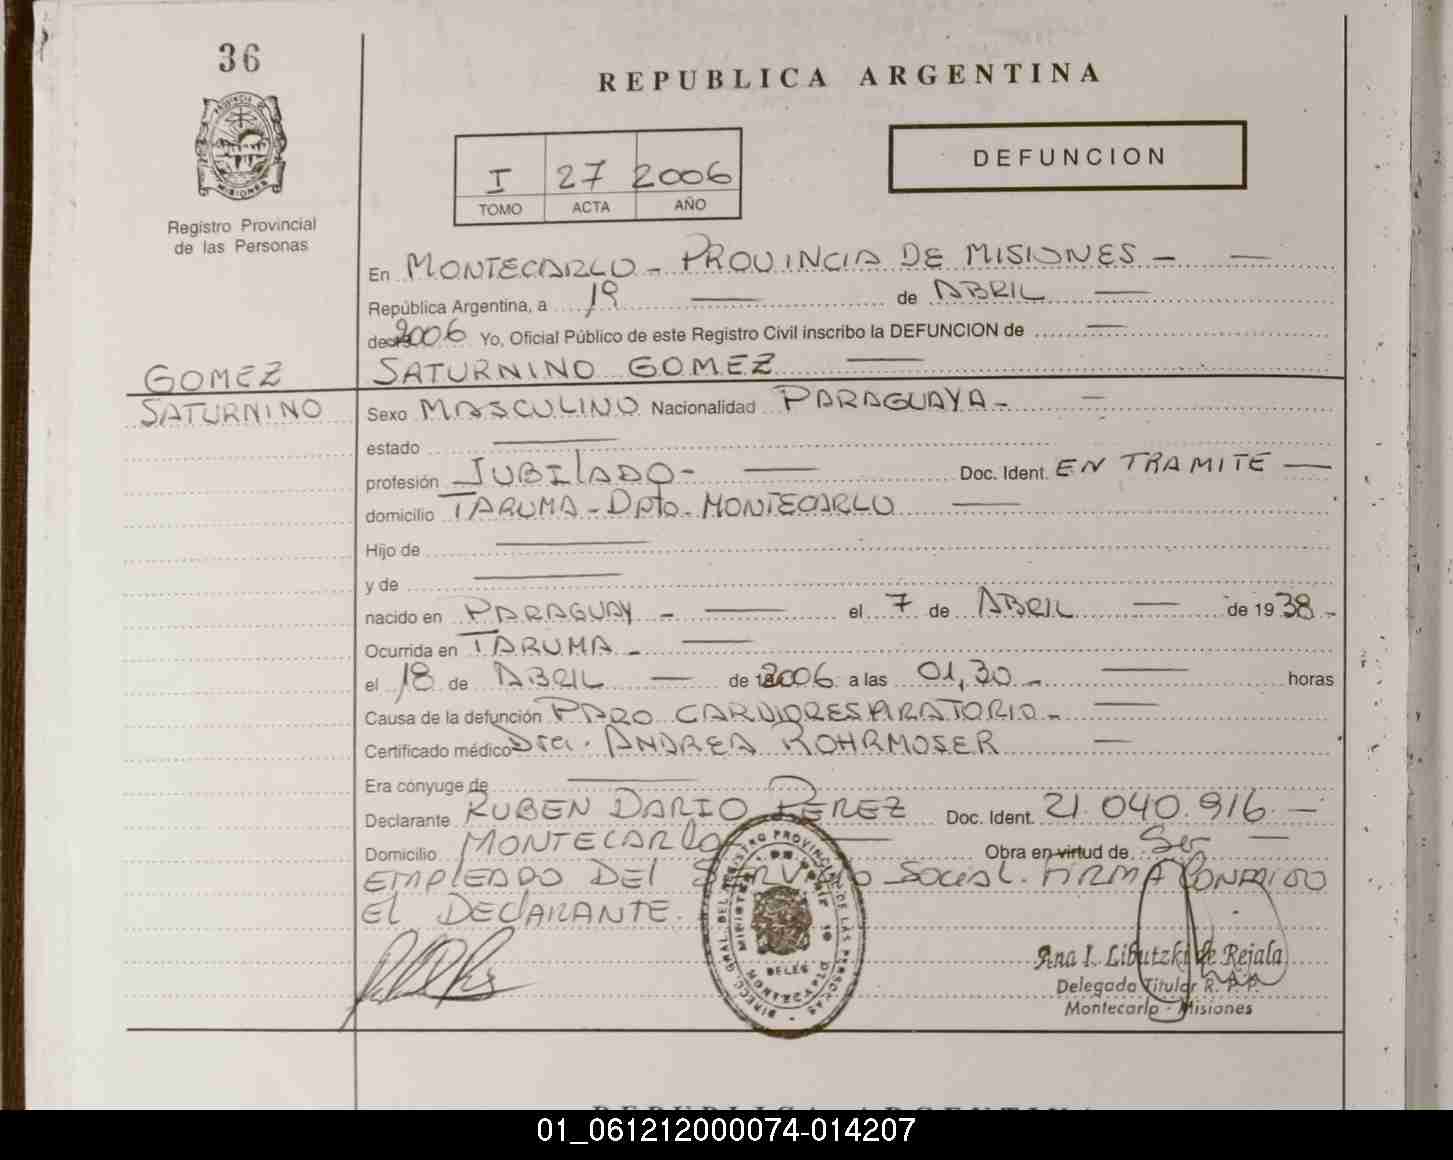 36
REPUBLICA ARGENTINA
DEFUNCION
I 27 2006
TOMO ACTA AÑO
Registro Provincial
de las Personas
En MONTECARLO - PROVINCIA DE MISIONES -
República Argentina, a 19 de ABRIL
de 2006 Yo, Oficial Público de este Registro Civil inscribo la DEFUNCION de
GOMEZ SATURNINO GOMEZ
SATURNINO Sexo MASCULINO Nacionalidad PARAGUAYA -
estado
profesión JUBILADO - Doc. Ident. EN TRAMITE
domicilio TARUMA - Dpto. MONTECARLO
Hijo de
y de
nacido en PARAGUAY - el 7 de ABRIL de 1938 -
Ocurrida en TARUMA -
el 18 de ABRIL de 2006 a las 01,30 - horas
Causa de la defunción PARO CARDIORESPIRATORIO -
Certificado médico Dra. ANDREA ROHRMOSER
Era cónyuge de
Declarante RUBEN DARIO PEREZ Doc. Ident. 21.040.916
Domicilio MONTECARLO Obra en virtud de Ser
EMPLEADO DEL SERVICIO SOCIAL. FIRMA CONMIGO
EL DECLARANTE.
DIRECC. GRAL. DEL REGISTRO PROVINCIAL DE LAS PERSONAS
Ana I. Libutzki de Rejala
Delegada Titular R. P. P.
Montecarlo - Misiones
REPUBLICA ARGENTINA
01_061212000074-014207